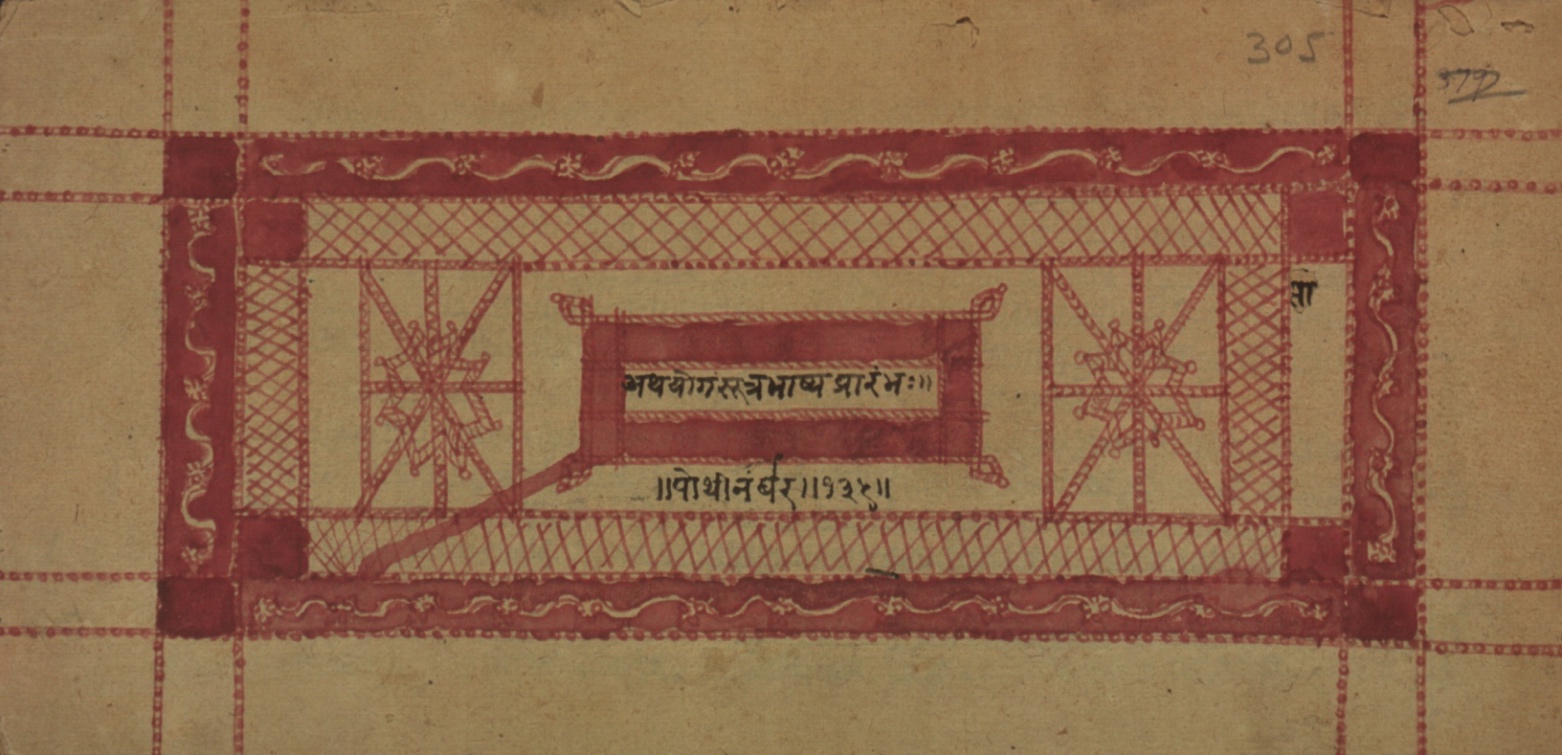 305
सा
अथयोगसूत्रभाष्यप्रारंभः॥
॥पोथीनंबर॥१३५॥